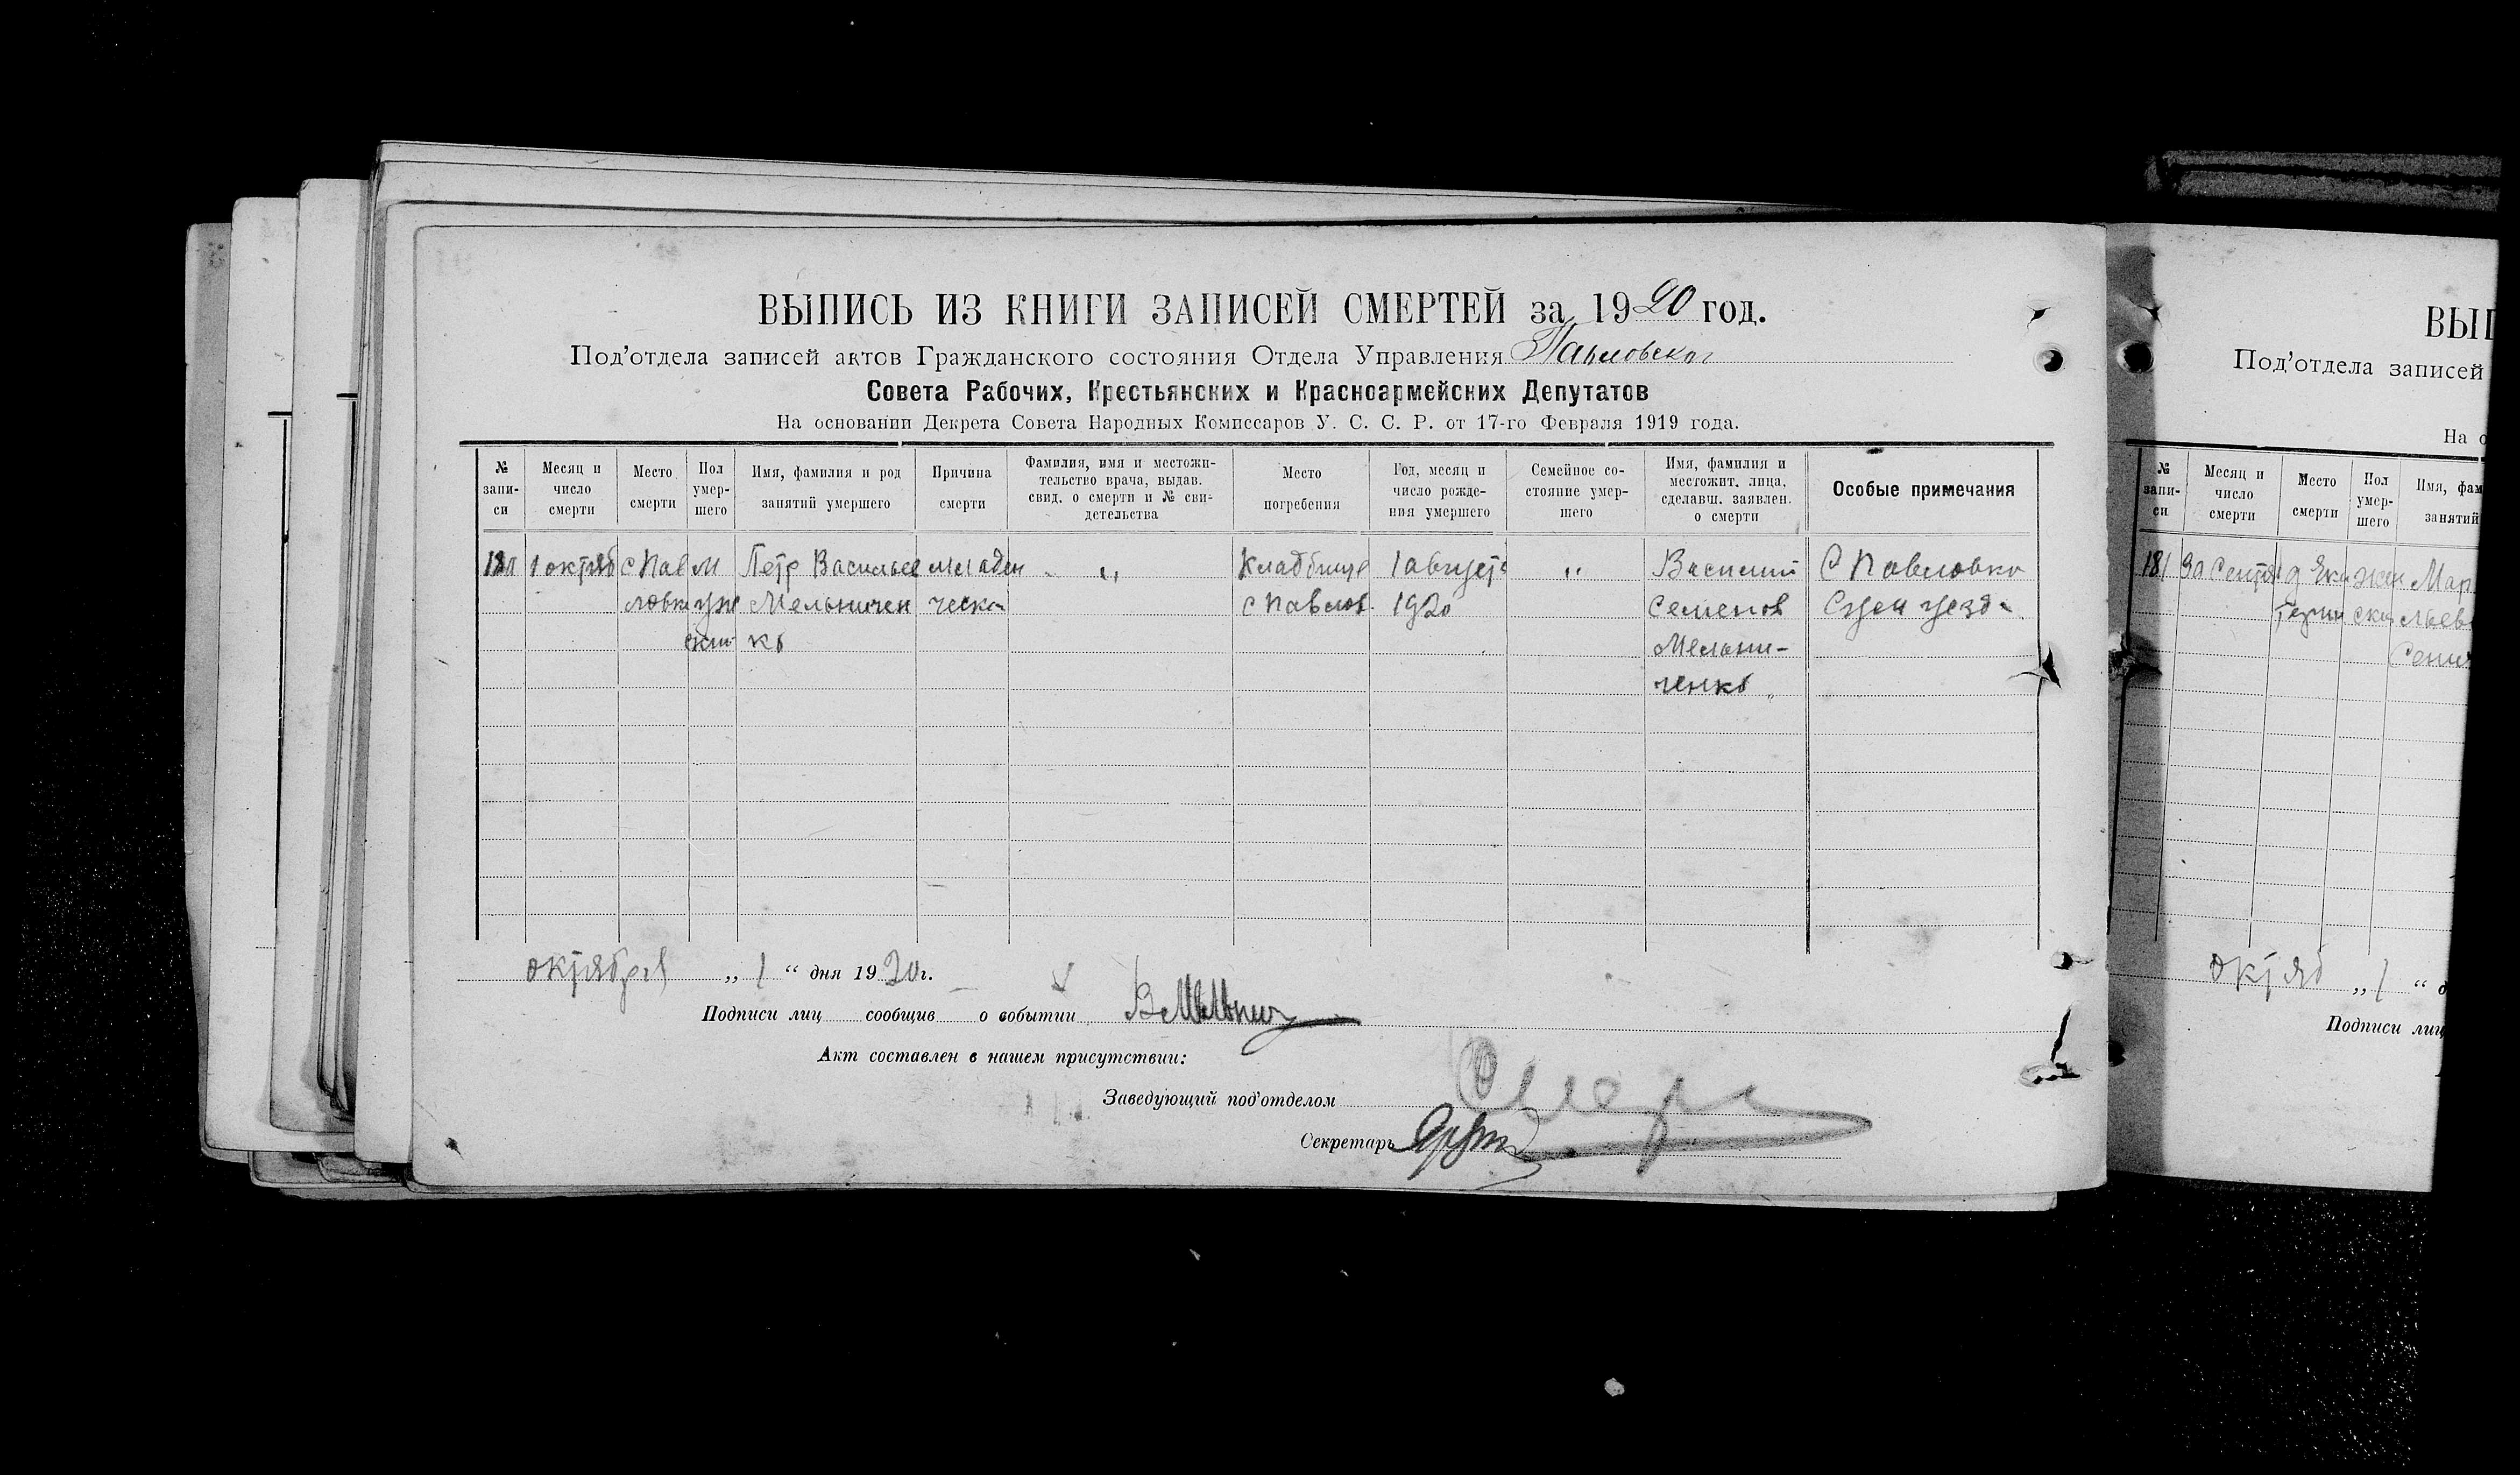 ВЫПИСЬ ИЗ КНИГИ ЗАПИСЕЙ СМЕРТЕЙ за 1920 год.
Под'отдела записей актов Гражданского состояния Отдела Управления Павловског
Совета Рабочих, Крестьянских и Красноармейских Депутатов
На основании Декрета Совета Народных Комиссаров У. С. С. Р. от 17-го Февраля 1919 года.
№ запи-
си
Месяц и
число
смерти
Место
смерти
Пол
умер-
шего
Имя, фамилия и род
занятий умершего
Причина
смерти
Фамилия, имя и местожи-
тельство врача, выдав.
свид. о смерти и № сви-
детельства
Место
погребения
Год, месяц и
число рожде-
ния умершего
Семейное со-
стояние умер-
шего
Имя, фамилия и
местожит. лица,
сделавш. заявлен.
о смерти
Особые примечания
180
1 октяб
с Пав
ловка
М
уж
ский
Петр Васильев
Мельничен
ко
младен
ческа
„
Кладбище
с Павлов.
1 августа
1920
„
Василий
Семенов
Мельни-
ченко
С Павловка
Сузд уезда
октября „ 1 “ дня 1920г.
Подписи лиц сообщив о событии ВМельнич
Акт составлен в нашем присутствии:
Заведующий под'отделом
Секретарь
ВЫП
Под'отдела записей
На о
№
запи-
си
Месяц и
число
смерти
Место
смерти
Пол
умер-
шего
Имя, фам
занятий
181
30 Сентя
д Ека
жен
ски
Мар
октяб „ 1 “ д
Подписи лиц